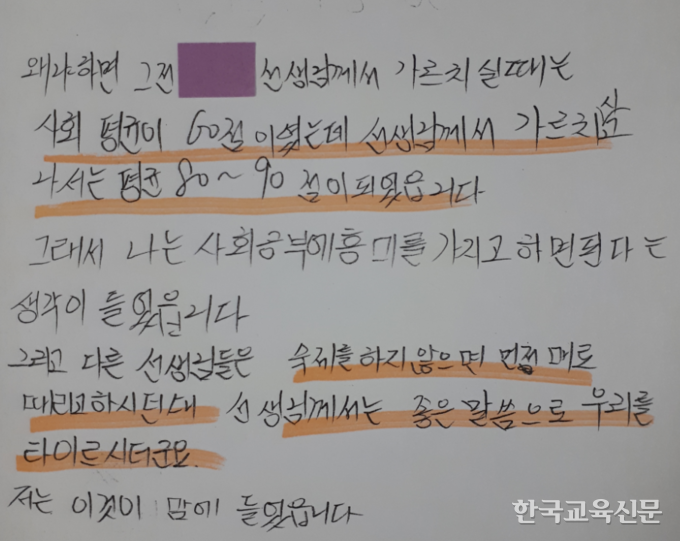 왜냐하면 그전 선생님께서 가르치실때는
사회 평균이 60점이였는데 선생님께서 가르치고
나서는 평균 80~90 점이되였읍니다
그래서 나는 사회공부에흥미를 가지고 하면된다는
생각이 들었읍니다
그리고 다른 선생님들은 숙제를하지않으면 먼저 매로
때리고하시던데 선생님께서는 좋은 말씀으로 우리를
타이르시더군요.
저는 이것이 맘에 들었읍니다
한국교육신문